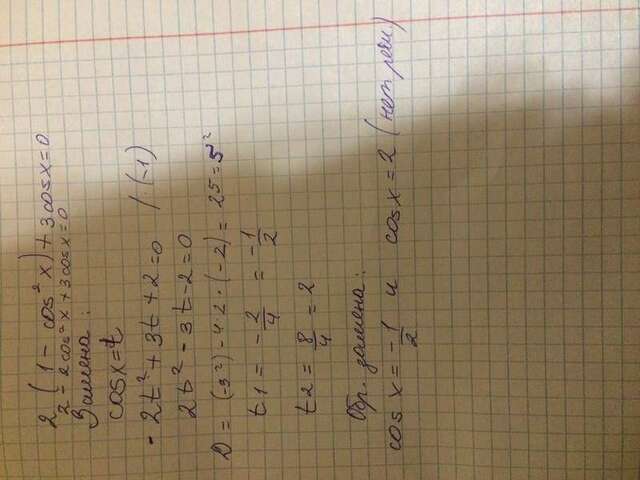 2 (1 - cos²x) + 3cosx = 0
2 - 2cos²x + 3cosx = 0
Замена:
cosx = t
-2t² + 3t + 2 = 0 / (-1)
2t² - 3t - 2 = 0
D = (-3²) - 4·2·(-2) = 25 = 5²
t1 = -2/4 = -1/2
t2 = 8/4 = 2
Обр. замена:
cos x = -1/2 и cosx = 2 (нет реш.)